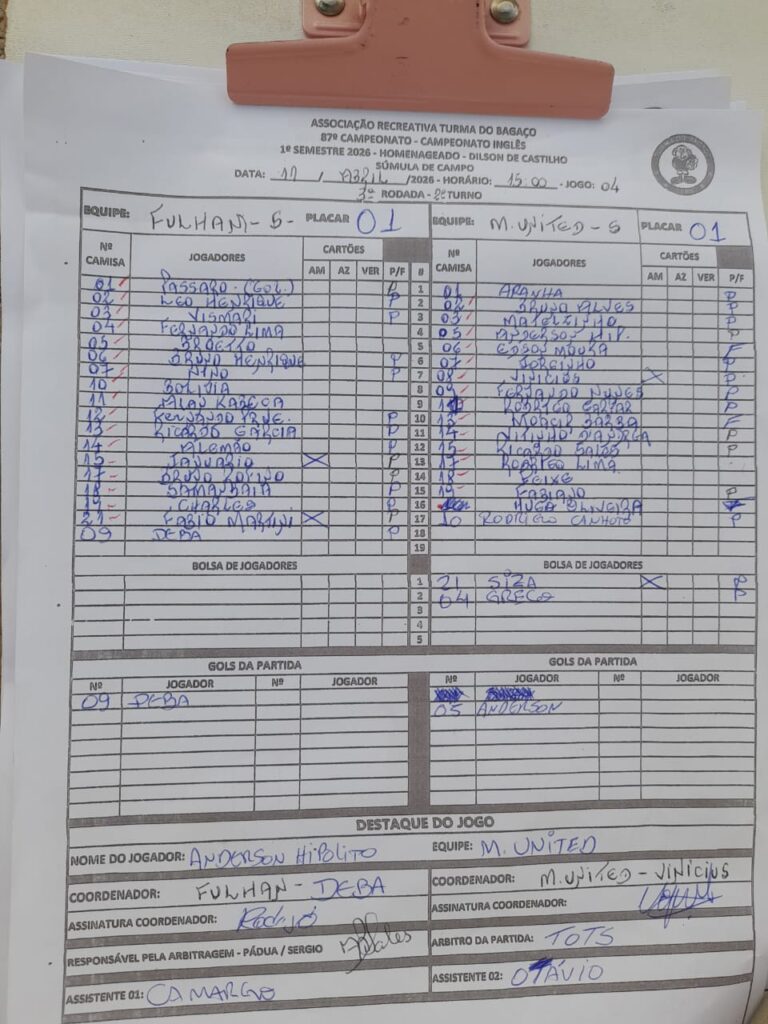 ASSOCIAÇÃO RECREATIVA TURMA DO BAGAÇO
87º CAMPEONATO - CAMPEONATO INGLÊS
1º SEMESTRE 2026 - HOMENAGEADO - DILSON DE CASTILHO
SÚMULA DE CAMPO
DATA: 11 / ABRIL /2026 - HORÁRIO: 15:00 - JOGO: 04
3ª RODADA - 2º TURNO
EQUIPE: FULHAM - S - PLACAR 01
EQUIPE: M. UNITED - S PLACAR 01
Nº CAMISA JOGADORES CARTÕES AM AZ VER P/F #
Nº CAMISA JOGADORES CARTÕES AM AZ VER P/F
01 PASSARO - (GOL.) P 1 01 ARANHA P
02 LEO HENRIQUE P 2 02 BRUNO ALVES P
03 VISMARI P 3 03 MATEUZINHO P
04 FERNANDO LIMA 4 05 ANDERSON HIP. P
05 5 06 EDSON MOURA F
06 BRUNO HENRIQUE P 6 07 JORGINHO P
07 NINO P 7 08 VINICIUS X P
10 BOLIVIA 8 09 FERNANDO NUNES P
11 ALAN KARECA 9 RODRIGO P
12 FERNANDO P 10 13 F
13 RICARDO GARCIA P 11 14 P
14 ALEMÃO P 12 15 RICARDO P
15 JANUARIO X P 13 17 LIMA
17 BRUNO P 14 18 PEIXE
18 SAMAMBAIA P 15 19 FABIANO P
19 CHARLES P 16 HUGA OLIVEIRA
21 FABIO MARTINI X P 17 10 RODRIGO CANHOTO P
09 DEBA P 18
19
BOLSA DE JOGADORES
BOLSA DE JOGADORES
1 21 SIZA X P
2 04 GRECO P
3
4
5
GOLS DA PARTIDA
GOLS DA PARTIDA
Nº JOGADOR Nº JOGADOR
Nº JOGADOR Nº JOGADOR
09 DEBA
05 ANDERSON
DESTAQUE DO JOGO
NOME DO JOGADOR: ANDERSON HIPOLITO EQUIPE: M. UNITED
COORDENADOR: FULHAN - DEBA
COORDENADOR: M. UNITED - VINICIUS
ASSINATURA COORDENADOR:
ASSINATURA COORDENADOR:
RESPONSÁVEL PELA ARBITRAGEM - PÁDUA / SERGIO
ARBITRO DA PARTIDA: TOTS
ASSISTENTE 01: CAMARGO
ASSISTENTE 02: OTÁVIO